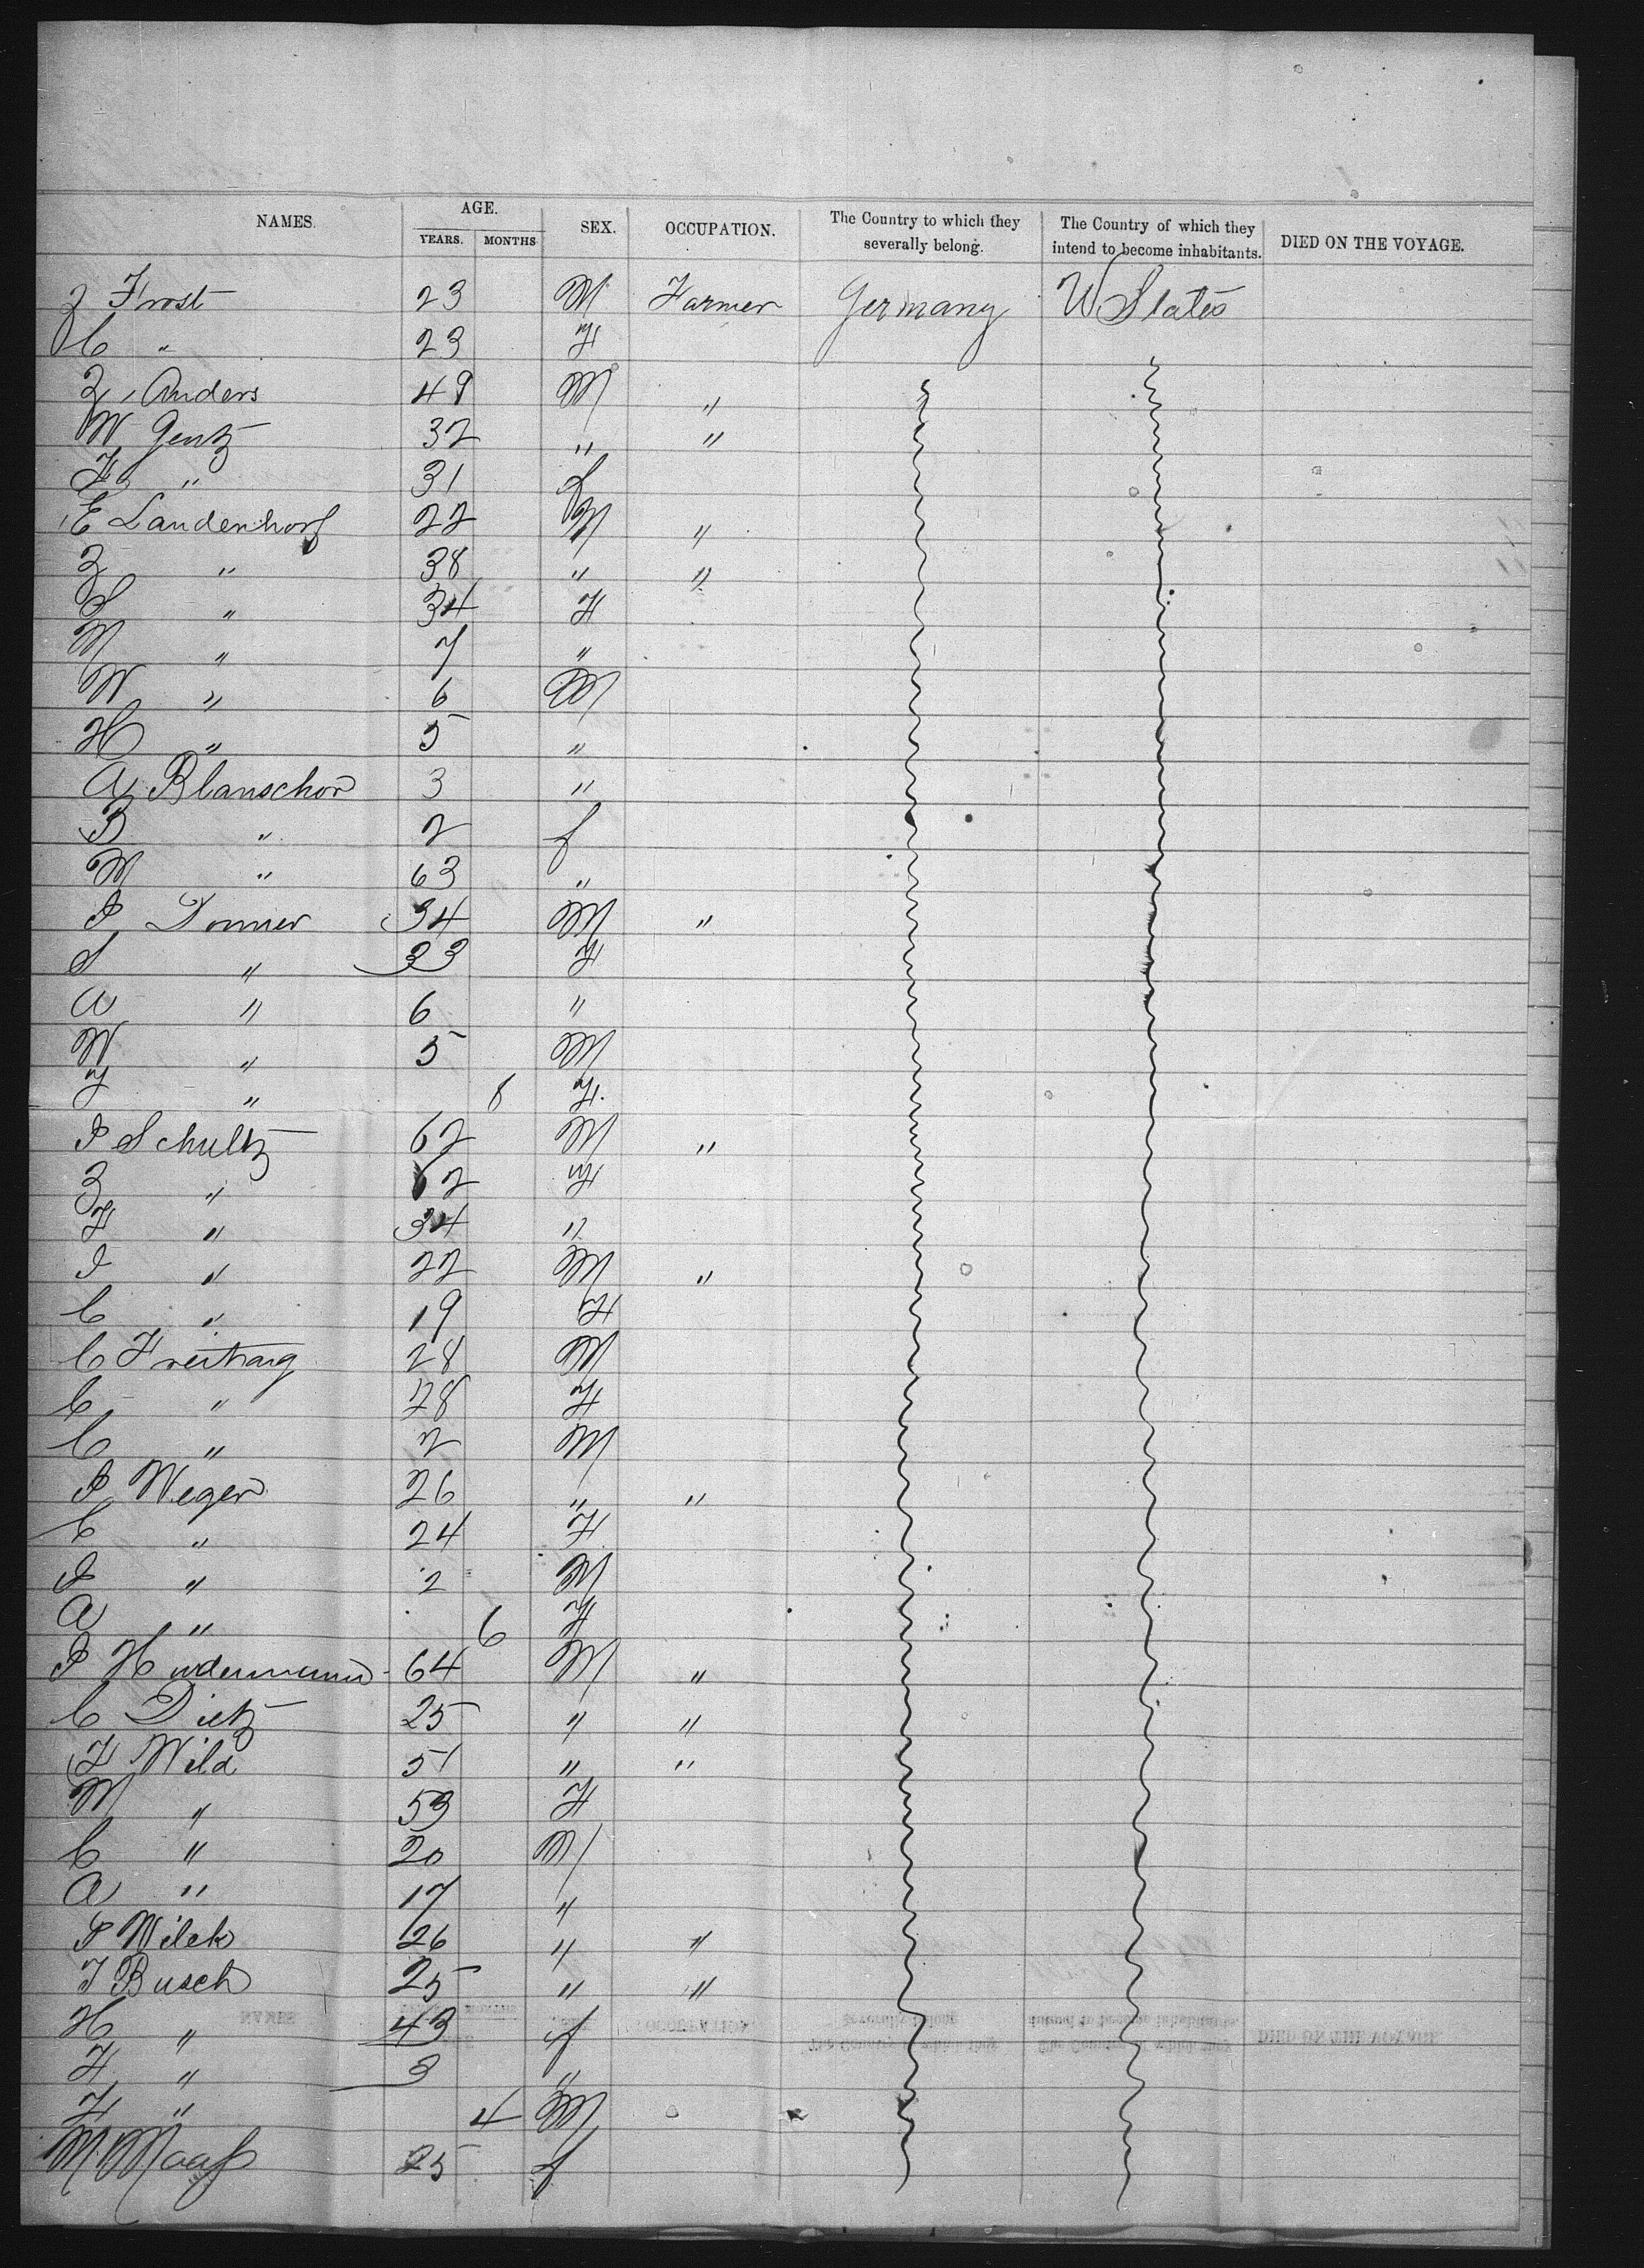 NAMES. AGE. SEX. OCCUPATION. The Country to which they severally belong. The Country of which they intend to become inhabitants. DIED ON THE VOYAGE.
YEARS. MONTHS
Frost 23 M Farmer Germany U States
C " 23 F
Anders 49 M "
W Gentz 32 " "
F " 31 f
E Landenhorf 22 M "
" 38 " "
S " 34 F
M " 7 "
W " 6 M
H " 5 "
A Blanschor 3 "
B " 2 f
M " 63 "
J Donner 34 M "
S " 33 F
A " 6 "
W " 5 M
" 8 F.
J Schultz 62 M "
" 62 F
F " 34 "
J " 22 M "
C " 19 F
C Freitrag 28 M
C " 28 F
C " 2 M
J Weger 26 " "
C " 24 F
J " 2 M
A " 6 F
J 64 M "
C Dietz 25 " "
F Wild 51 " "
M " 53 F
C " 20 M
A " 17 "
J Wilck 26 " "
J Busch 25 " "
H " 43 f
F " 3 "
F " 4 M
M Maaß 25 f